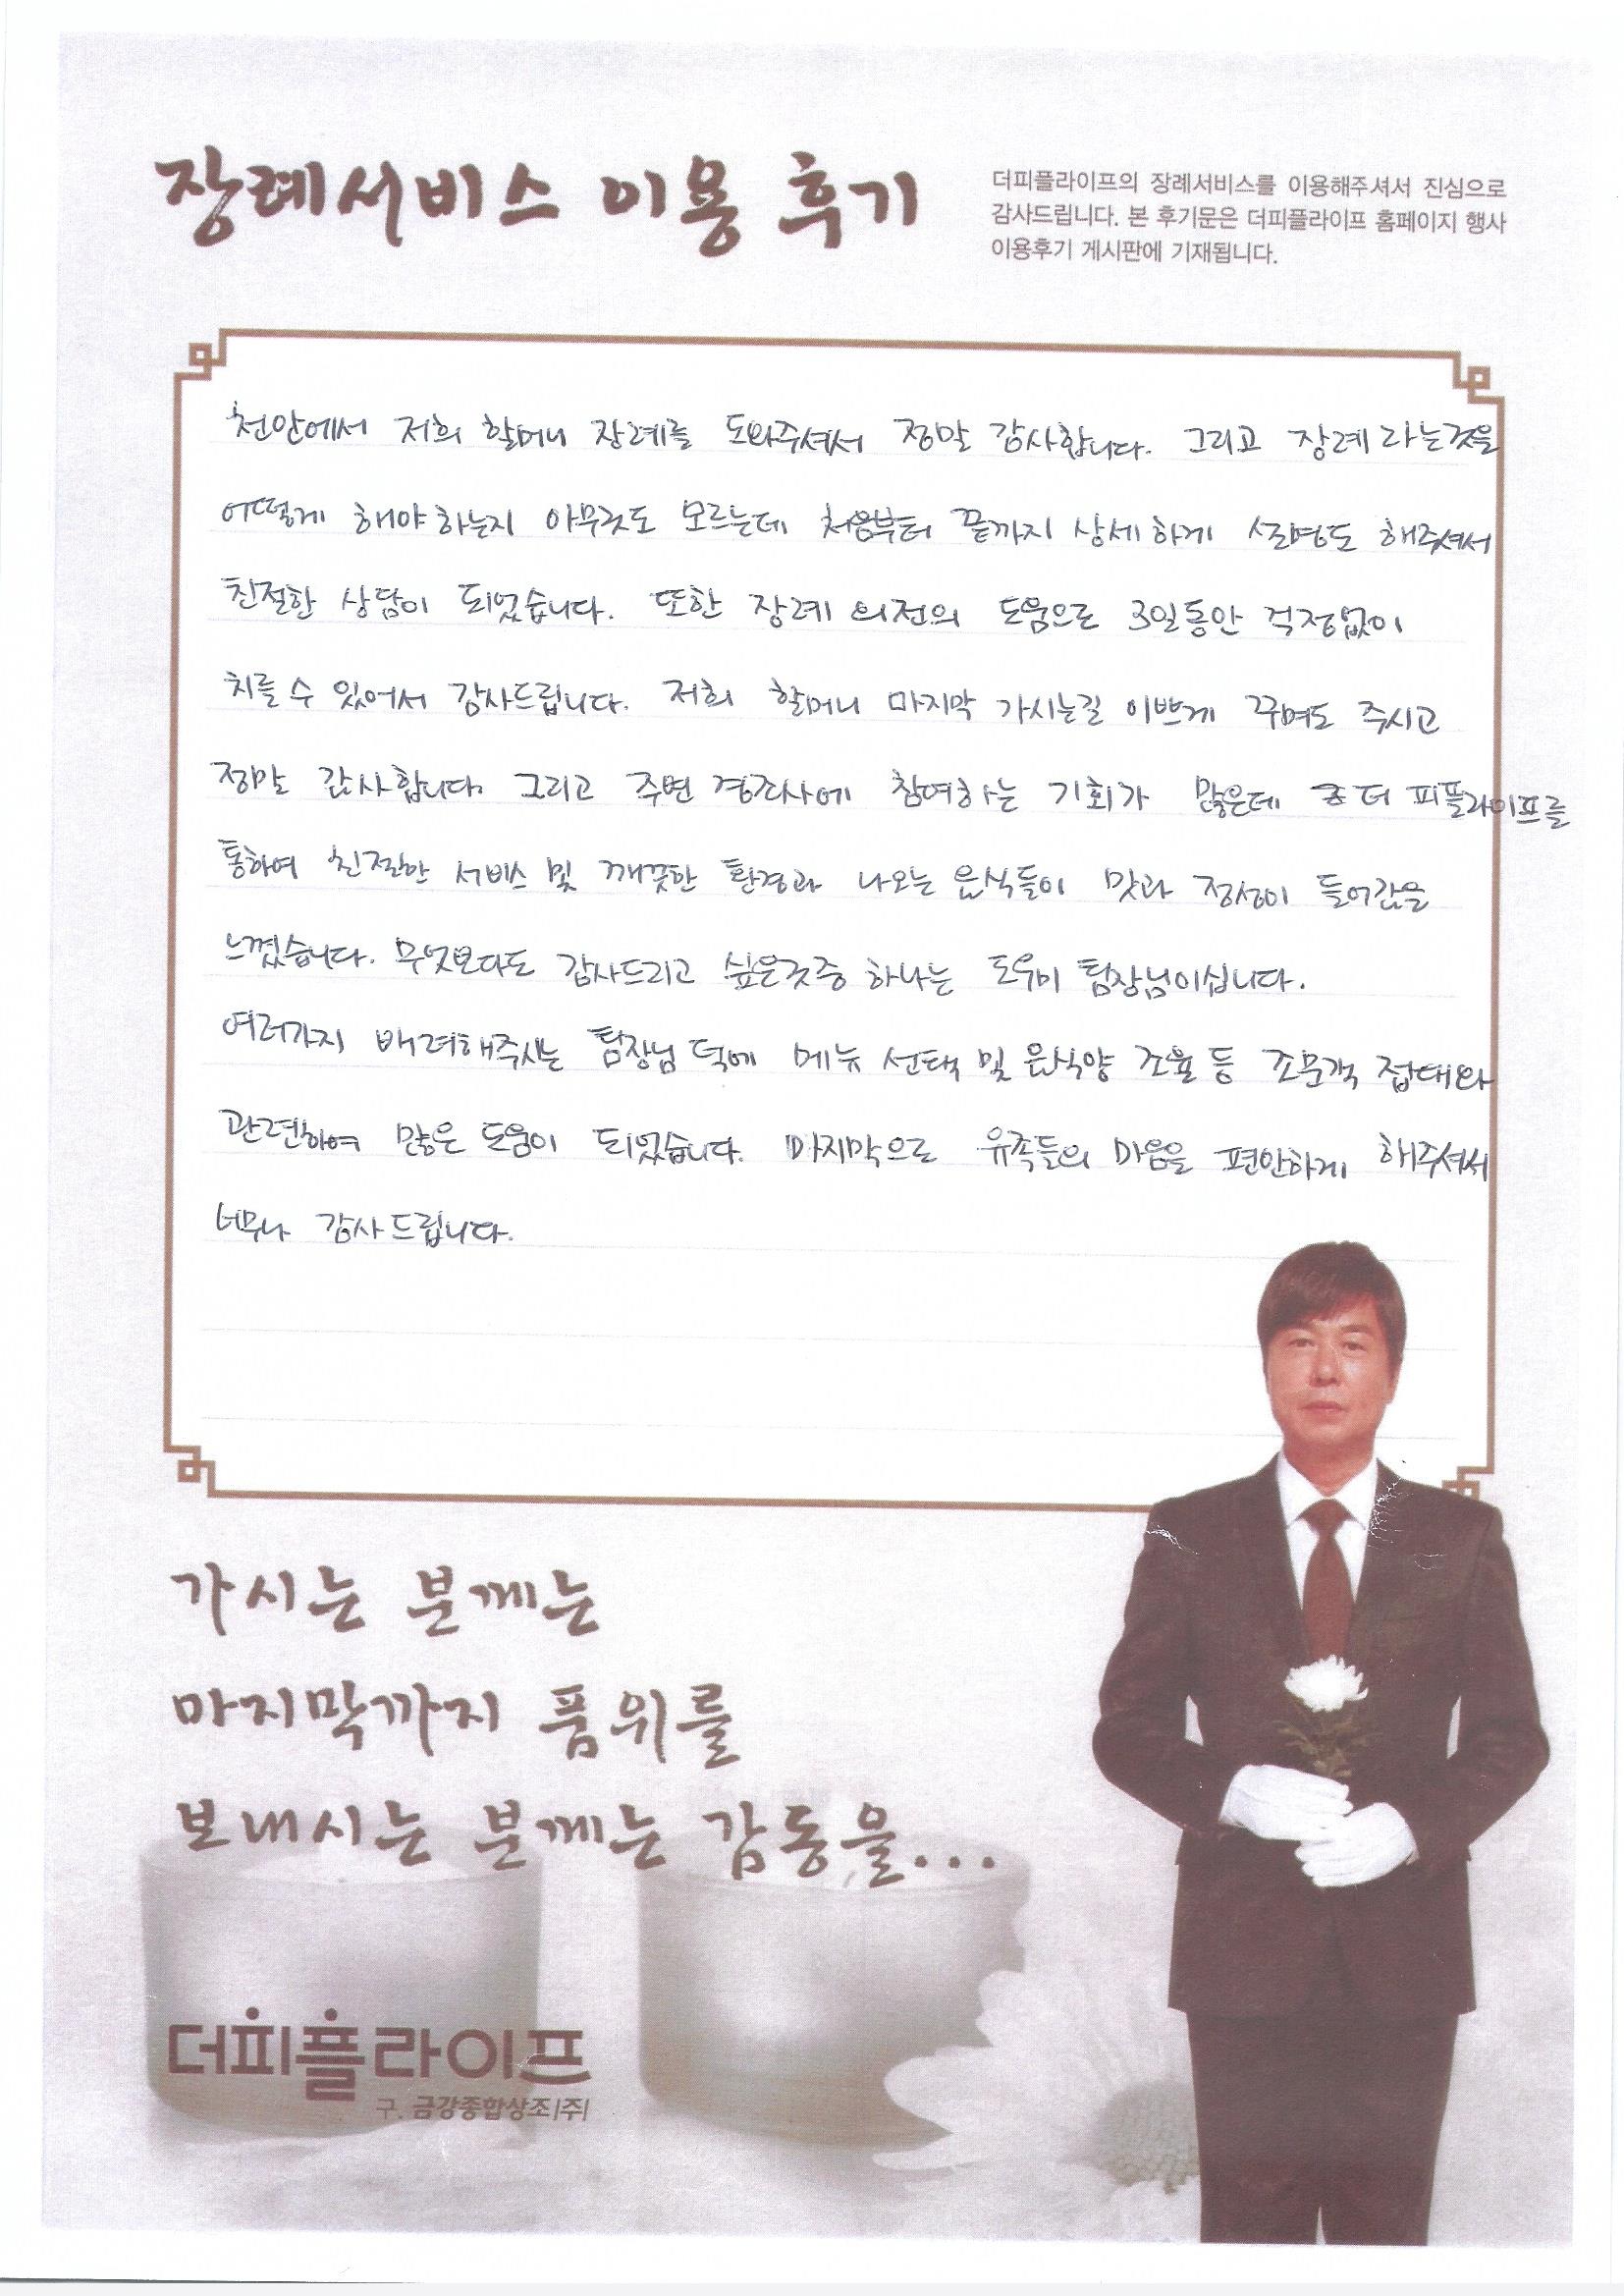 장례서비스 이용 후기
더피플라이프의 장례서비스를 이용해주셔서 진심으로
감사드립니다. 본 후기문은 더피플라이프 홈페이지 행사
이용후기 게시판에 기재됩니다.
천안에서 저희 할머니 장례를 도와주셔서 정말 감사합니다. 그리고 장례라는것을
어떻게 해야하는지 아무것도 모르는데 처음부터 끝까지 상세하게 설명도 해주셔서
친절한 상담이 되었습니다. 또한 장례 의전의 도움으로 3일동안 걱정없이
치를수 있어서 감사드립니다. 저희 할머니 마지막 가시는길 이쁘게 꾸며도 주시고
정말 감사합니다. 그리고 주변 경조사에 참여하는 기회가 많은데 더 피플라이프를
통하여 친절한 서비스 및 깨끗한 환경과 나오는 음식들이 맛과 정성이 들어감을
느꼈습니다. 무엇보다도 감사드리고 싶은것중 하나는 도우미 팀장님이십니다.
여러가지 배려해주시는 팀장님 덕에 메뉴 선택 및 음식양 조율 등 조문객 접대와
관련하여 많은 도움이 되었습니다. 마지막으로 유족들의 마음을 편안하게 해주셔서
너무나 감사드립니다.
가시는 분께는
마지막까지 품위를
보내시는 분께는 감동을...
더피플라이프
구. 금강종합상조(주)